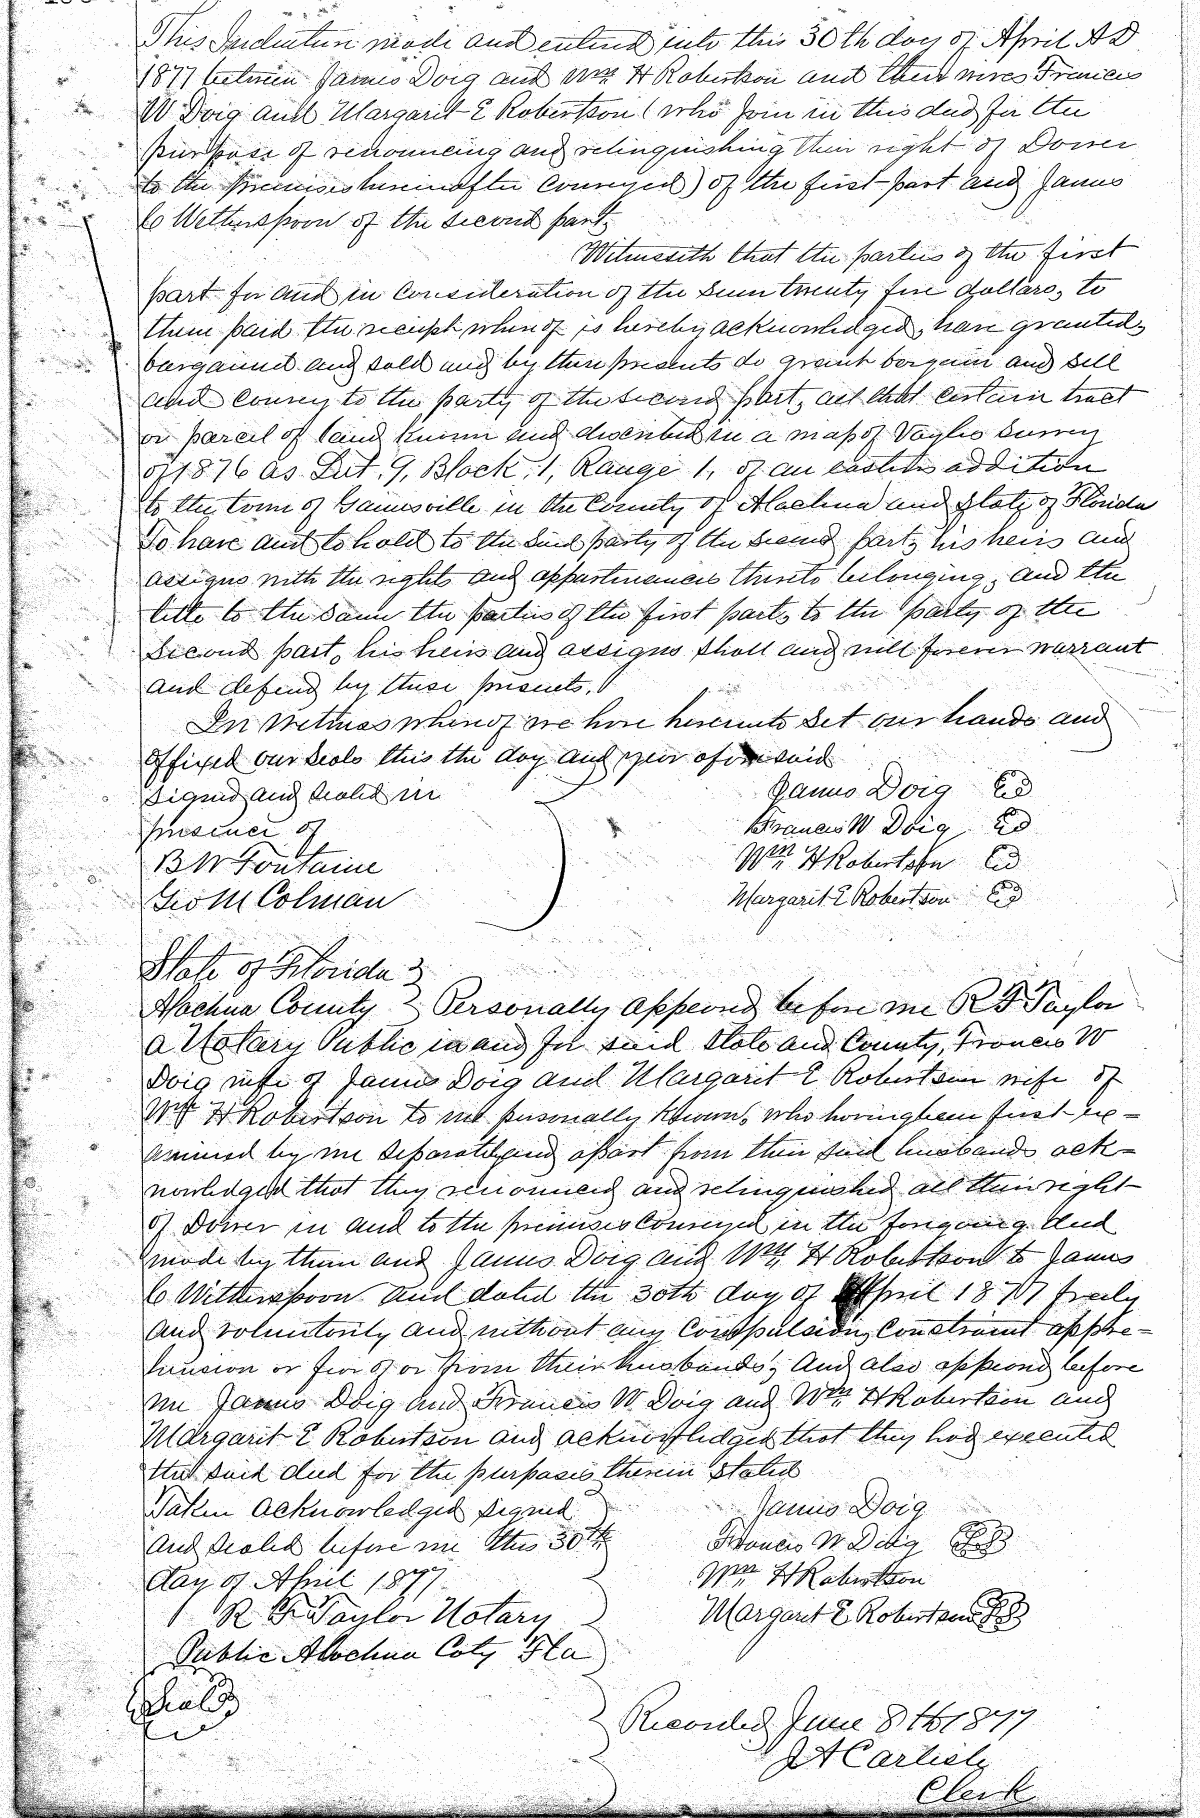 This Indenture made and entered into this 30th day of April A D
1877 between James Doig and Wm H Robertson and their wives Frances
W Doig and Margarit E Robertson (who join in this deed for the
purpose of renouncing and relinquishing their right of Dower
to the premises hereinafter conveyed) of the first part and James
C Witherspoon of the second part,
Witnesseth that the parties of the first
part for and in consideration of the sum twenty five dollars, to
them paid the receipt whereof is hereby acknowledged, have granted,
bargained and sold and by these presents do grant bargain and sell
and convey to the party of the second part, all that certain tract
or parcel of land known and described in a map of survey
of 1876 as Lot. 9, Block. 1, Range 1, of an eastern addition
to the town of Gainesville in the County of Alachua and State of Florida
To have and to hold to the said party of the second part, his heirs and
assigns with the rights and appurtinances thereto belonging, and the
title to the same the parties of the first part, to the party of the
second part, his heirs and assigns shall and will forever warrant
and defend by these presents.
In Witness whereof we have hereunto set our hands and
affixed our seals this the day and year aforesaid
Signed and sealed in James Doig
presence of Francis W Doig
B W Fontaine Wm H Robertson
Geo M Colman Margarit E Robertson
State of Florida
Alachua County Personally appeared before me R F Taylor
a Notary Public in and for said State and County, Francis W
Doig wife of James Doig and Margarit E Robertson wife of
Wm H Robertson to me personally known, who having been first ex=
amined by me separately and apart from their said husbands ack=
nowledged that they renounced and relinquished all their right
of Dower in and to the premises conveyed in the foregoing deed
made by them and James Doig and Wm H Robertson to James
C Witherspoon and dated the 30th day of April 1877 freely
and voluntarily and without any compulsion, constraint appre=
hension or fear of or from their husbands; And also appeared before
me James Doig and Francis W. Doig and Wm H Robertson and
Margarit E Robertson and acknowledged that they had executed
the said deed for the purposes therein stated
Taken acknowledged signed James Doig
and sealed before me this 30th Francis W Doig LS
day of April 1877. Wm H Robertson
R F Taylor Notary Margaret E Robertson LS
Public Alachua Coty Fla
Seal
Recorded June 8th 1877
J A Carlisle
Clerk